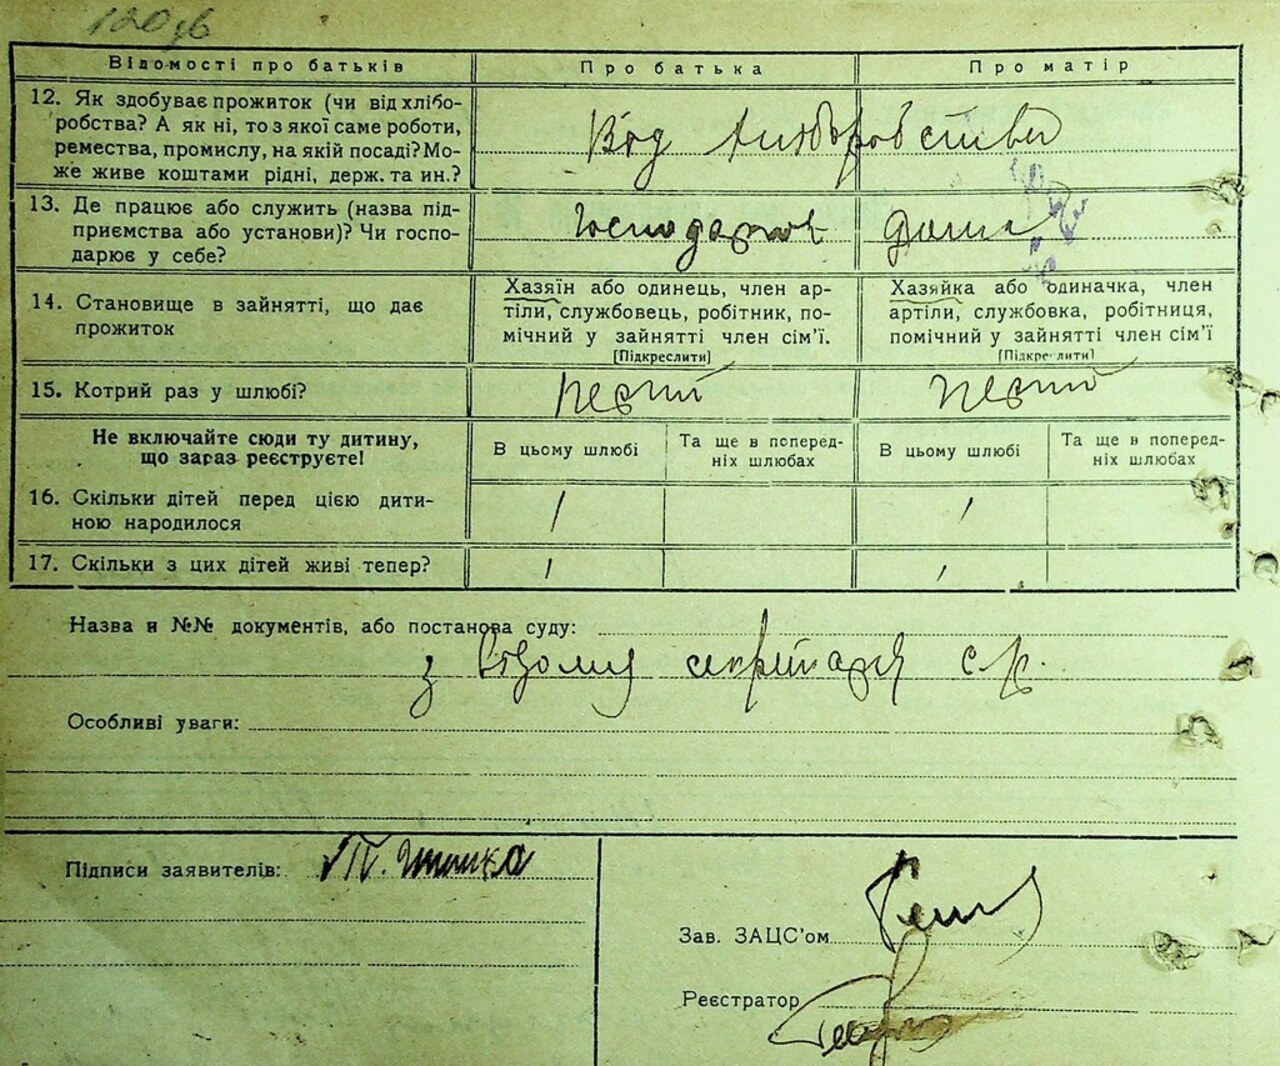 120 зв
Відомості про батьків
Про батька
Про матір
12. Як здобуває прожиток (чи від хлібо-
робства? А як ні, то з якої саме роботи,
ремества, промислу, на якій посаді? Мо-
же живе коштами рідні, держ. та ин.?
Від хліборобства
13. Де працює або служить (назва під-
приємства або установи)? Чи госпо-
дарює у себе?
господарює
дома
14. Становище в зайнятті, що дає
прожиток
Хазяїн або одинець, член ар-
тіли, службовець, робітник, по-
мічний у зайнятті член сім'ї.
[Підкреслити]
Хазяйка або одиначка, член
артіли, службовка, робітниця,
помічний у зайнятті член сім'ї
[Підкреслити]
15. Котрий раз у шлюбі?
перший
перший
Не включайте сюди ту дитину,
що зараз реєструєте!
В цьому шлюбі
Та ще в поперед-
ніх шлюбах
В цьому шлюбі
Та ще в поперед-
ніх шлюбах
16. Скільки дітей перед цією дити-
ною народилося
1
1
17. Скільки з цих дітей живі тепер?
1
1
Назва и №№ документів, або постанова суду:
з відома секретаря с/р.
Особливі уваги:
Підписи заявителів:
Зав. ЗАЦС'ом
Реєстратор